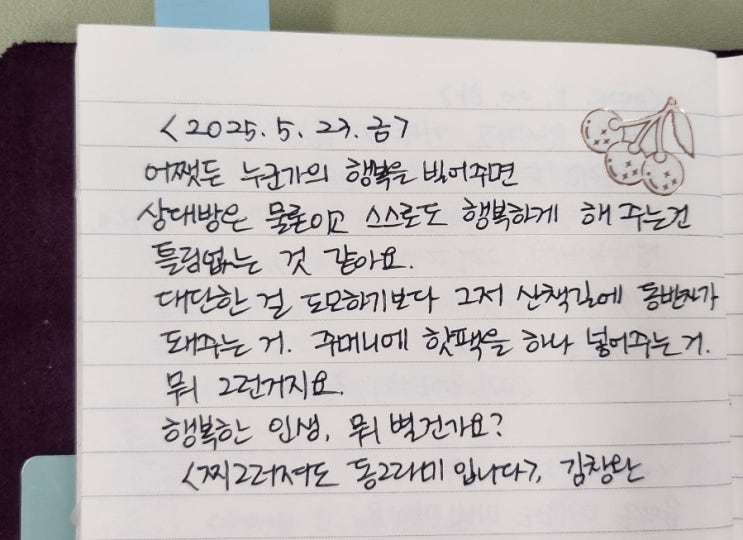 <2025.5.23.금>
어쨌든 누군가의 행복을 빌어주면
상대방은 물론이고 스스로도 행복하게 해 주는건
틀림없는 것 같아요.
대단한 걸 도모하기보다 그저 산책길에 동반자가
돼주는 거. 주머니에 핫팩을 하나 넣어주는 거.
뭐 그런거지요.
행복한 인생, 뭐 별건가요?
<찌그러져도 동그라미입니다>, 김창완